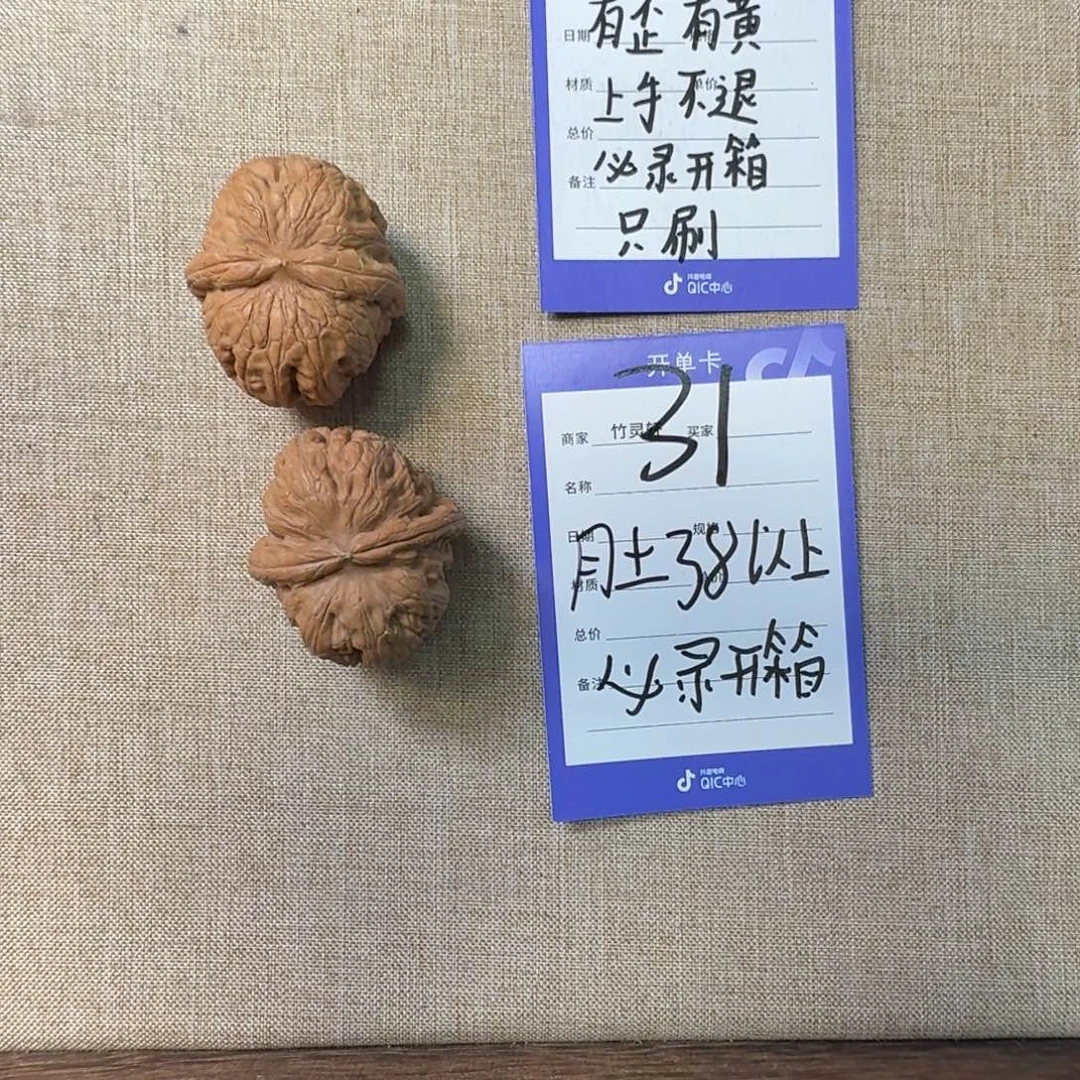 有歪 有黄
日期
材质 单价
上手不退
总价
必录开箱
备注
只刷
抖音电商
QIC中心
开单卡
31
商家 竹灵轩 买家
名称
日期 规格
月土38以上
材质
总价
必录开箱
备注
抖音电商
QIC中心